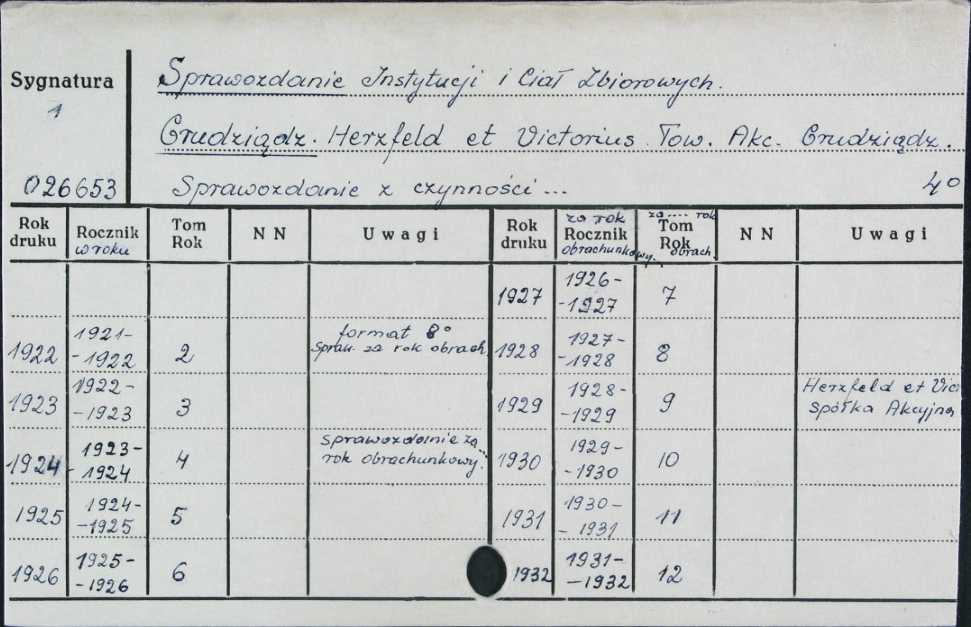 Sygnatura
1
026653
Sprawozdanie Instytucji i Ciał Zbiorowych.
Grudziądz. Herzfeld et Victorius. Tow. Akc. Grudziądz.
Sprawozdanie z czynności... 4°
Rok druku Rocznik w roku Tom Rok N N Uwagi Rok druku za rok Rocznik obrachunkowy. za .... rok Tom Rok obrach. N N Uwagi
1927 1926-
-1927 7
1922 1921-
-1922 2 format 8°
Spraw. za rok obrach. 1928 1927-
-1928 8
1923 1922-
-1923 3 1929 1928-
-1929 9 Herzfeld et Vic
Spółka Akcyjna
1924 1923-
-1924 4 Sprawozdanie za...
rok obrachunkowy. 1930 1929-
-1930 10
1925 1924-
-1925 5 1931 1930-
-1931 11
1926 1925-
-1926 6 1932 1931-
-1932 12